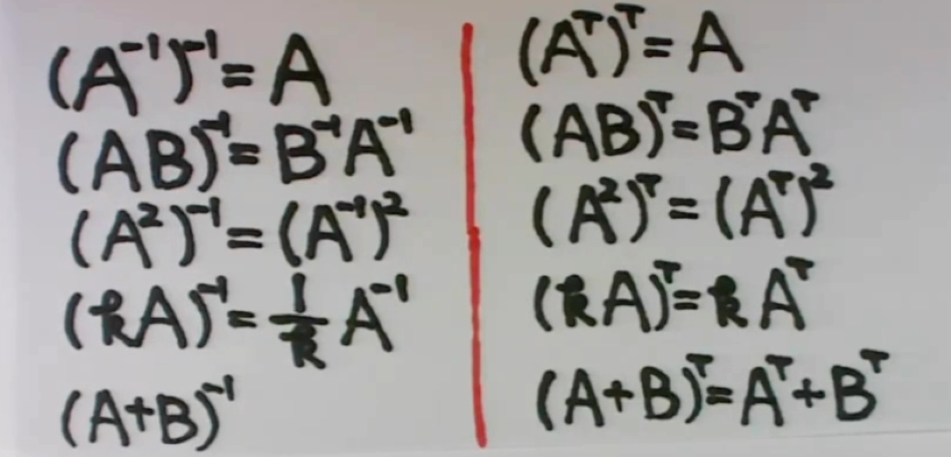 (A⁻¹)⁻¹ = A
(AB)⁻¹ = B⁻¹A⁻¹
(A²)⁻¹ = (A⁻¹)²
(kA)⁻¹ = 1/k A⁻¹
(A+B)⁻¹
(Aᵀ)ᵀ = A
(AB)ᵀ = BᵀAᵀ
(A²)ᵀ = (Aᵀ)²
(kA)ᵀ = kAᵀ
(A+B)ᵀ = Aᵀ+Bᵀ